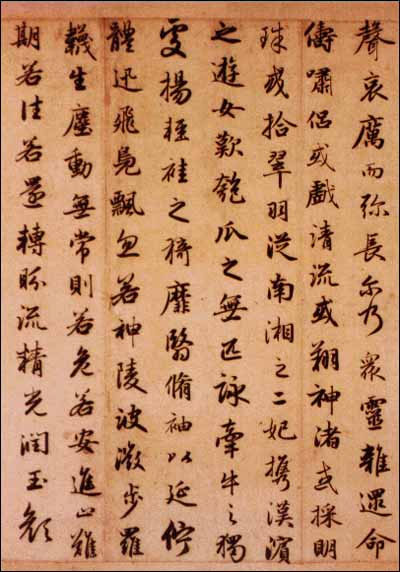 聲哀厲而弥長尔乃眾靈雜遝命
儔嘯侣或戲清流或翔神渚或採明
珠或拾翠羽從南湘之二妃攜漢濱
之遊女歎匏瓜之無匹詠牽牛之獨
處揚輕袿之猗靡翳脩袖以延佇
體迅飛鳧飄忽若神陵波微步羅
韈生塵動無常則若危若安進止難
期若往若還轉眄流精光潤玉顏